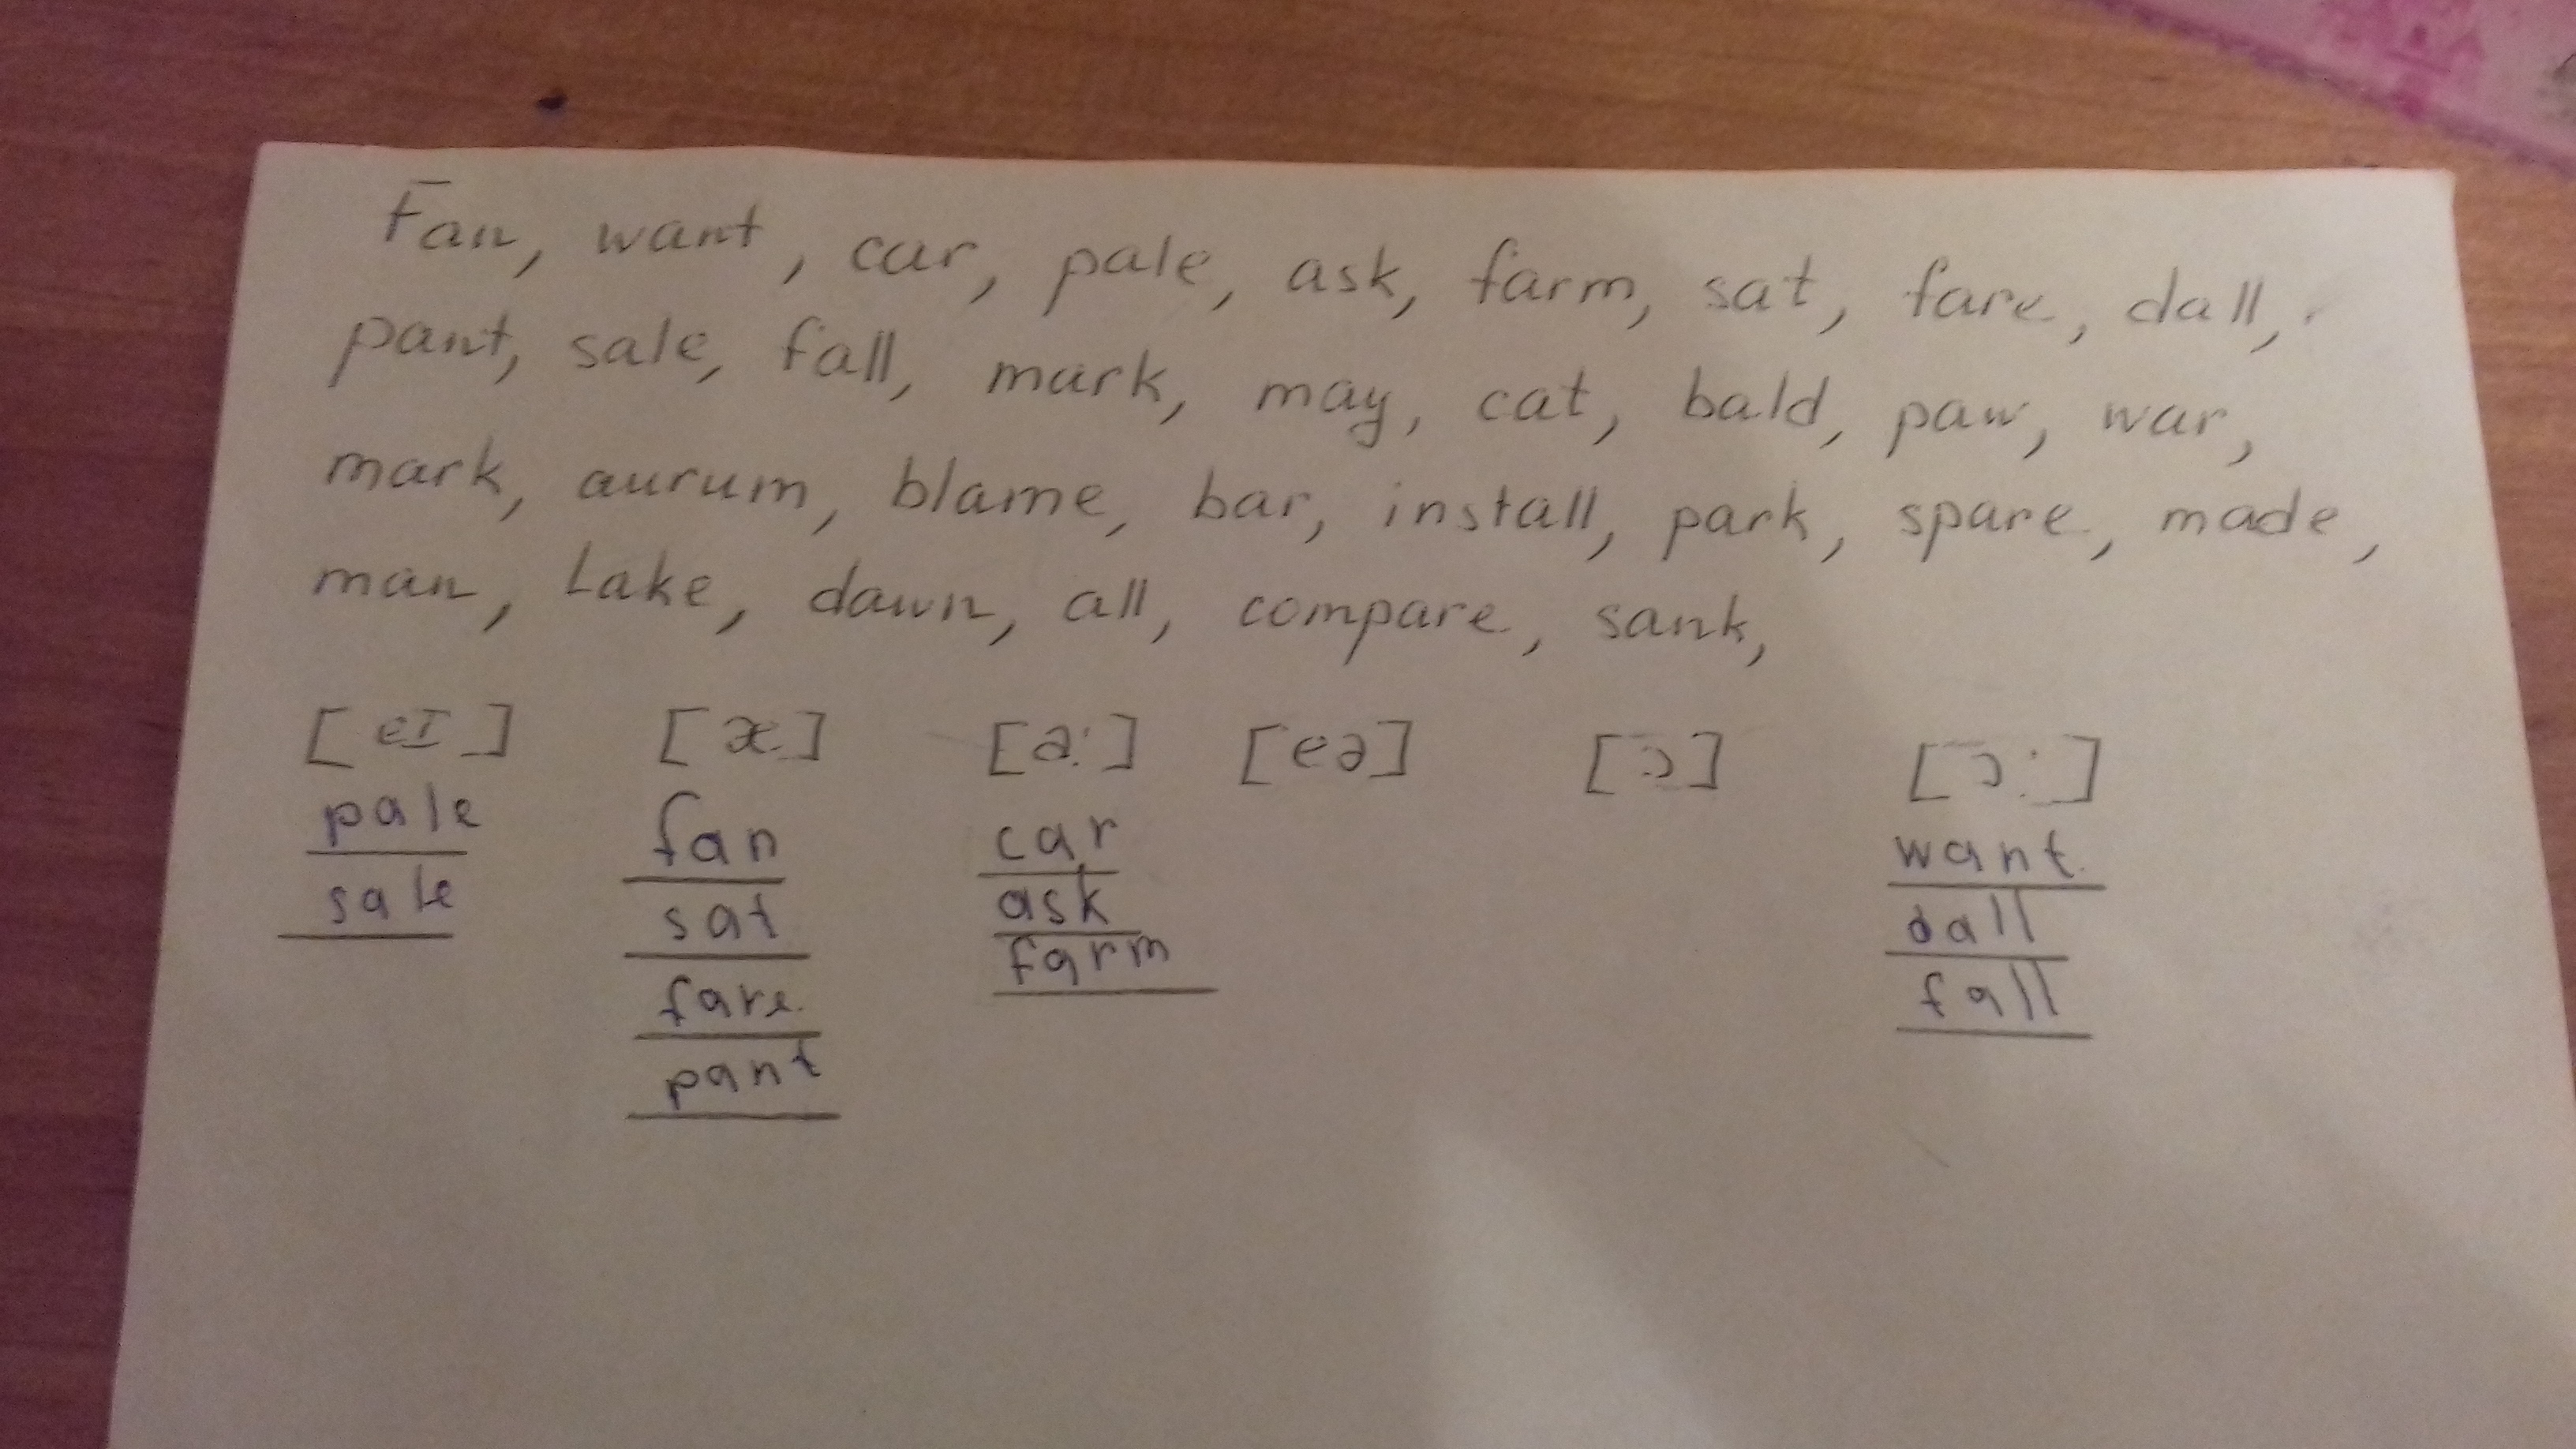 Fan, want, car, pale, ask, farm, sat, fare, dall,
pant, sale, fall, mark, may, cat, bald, paw, war,
mark, aurum, blame, bar, install, park, spare, made,
man, Lake, dawn, all, compare, sank,
[eI] [æ] [a:] [eə] [ɔ] [ɔ:]
pale fan car want
sale sat ask dall
fare farm fall
pant